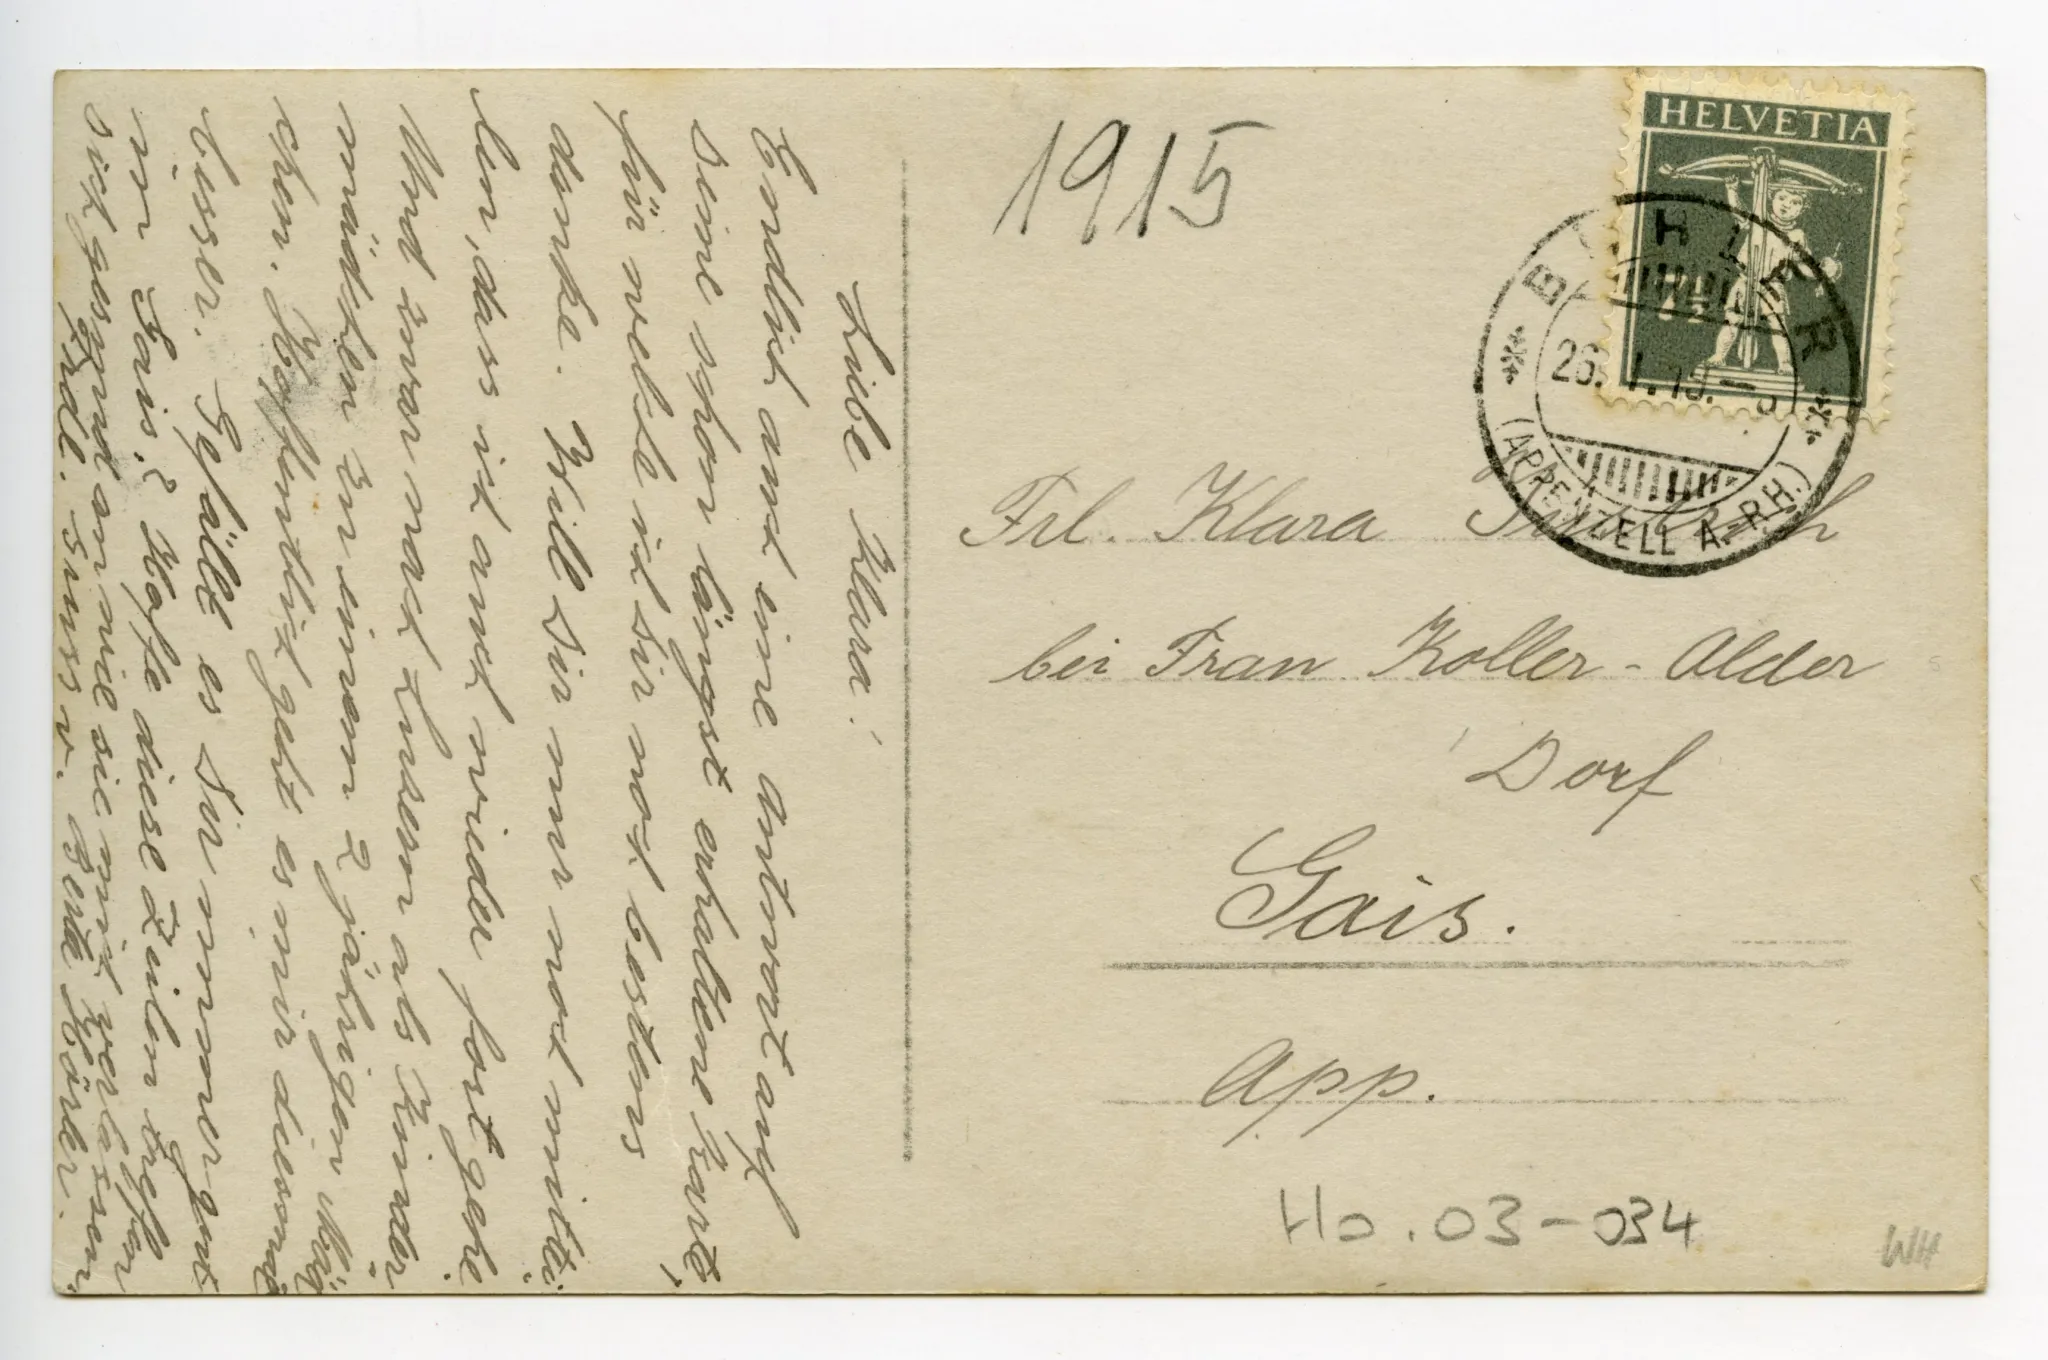 Liebe Klara!
Endlich auch eine Antwort auf
Deine schon längst erhaltene Karte,
für welche ich Dir noch bestens
danke. Will Dir nur noch mittei-
len, dass ich auch wieder fort gehe.
Und zwar nach Luzern als Kinder-
mädchen zu einem 2 jährigen Mäd-
chen. Hoffentlich geht es mir diesmal
besser. Gefällt es Dir immer gut
in Gais? Hoffe diese Zeilen treffen
Dich gesund an wie sie mich verlassen.
Frdl. Gruss v. Berta
1915
HELVETIA
2½
BÜHLER
26. I. 15. -
(APPENZELL A.-RH.)
Frl. Klara
bei Frau Koller-Alder
Dorf
Gais.
App.
Ho. 03-034
WH